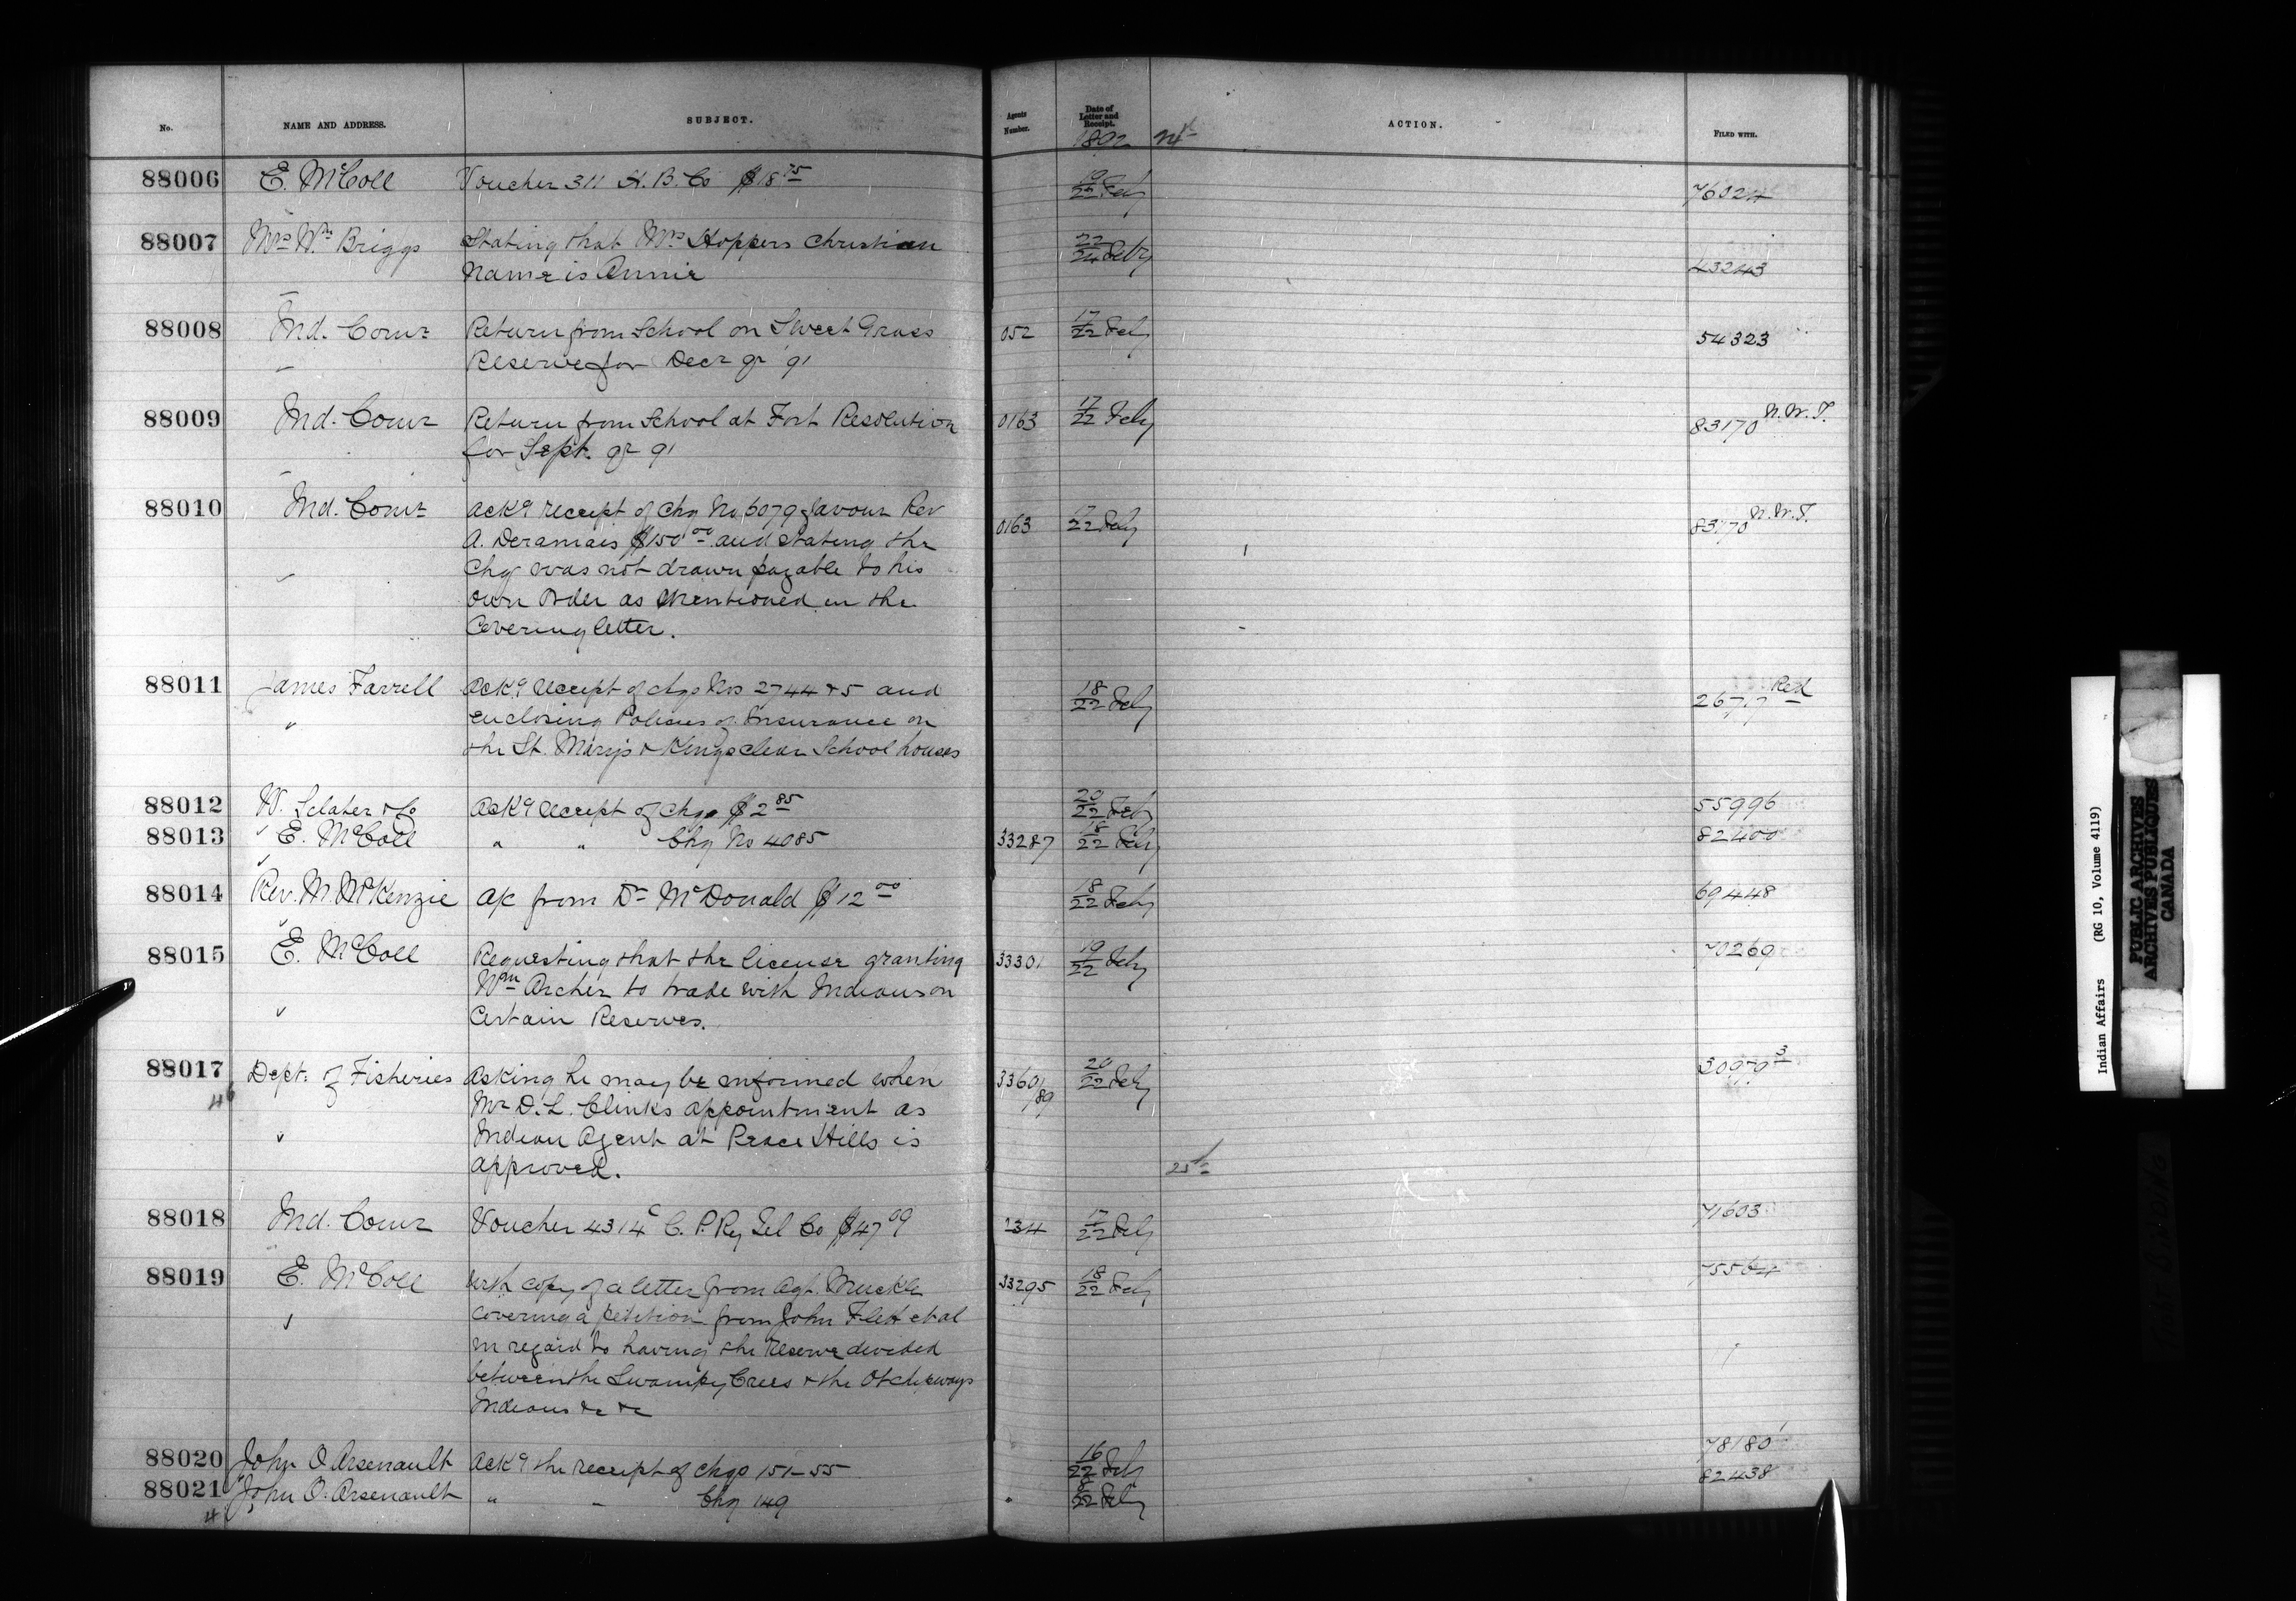 No. NAME AND ADDRESS. SUBJECT. Agents Number. Date of Letter and Receipt. ACTION. FILED WITH.
1892
88006 E. McColl Voucher 311 H. B. Co $18 75 19/22 Feby 76024
88007 Mrs Wm Briggs Stating that Mrs Hoppers Christian 22/24 Feby 43243
Name is Annie
88008 Ind. Comr Return from School on Sweet Grass 052 17/22 Feby 54323
Reserve for Decr qr '91
88009 Ind. Comr Return from School at Fort Resolution 0163 17/22 Feby 83170 N.W.T.
for Sept. qr 91
88010 Ind. Comr Ackg receipt of Chq No 6079 favour Rev 0163 17/22 Feby 83170 N.W.T.
A. Deramais $150 00 and stating the
Chq was not drawn payable to his
own Order as Mentioned in the
Covering letter.
88011 James Farrell Ackg receipt of chqs Nos 2744 & 5 and 18/22 Feby Red
enclosing Policies of Insurance on
the St. Mary's & Kingsclear School houses
88012 W. Sclater & Co Ackg receipt of chq $2 85 20/22 Feby 55996
88013 E. McColl " " Chq No 4085 33287 18/22 Feby 82400
88014 Rev. M. McKenzie A/c from Dr McDonald $12 00 18/22 Feby 69448
88015 E. McColl Requesting that the license granting 33301 19/22 Feby 70269
Wm Archer to trade with Indians on
Certain Reserves.
88017 Dept. of Fisheries Asking he may be informed when 33601/89 20/22 Feby 30979 3
Mr D. L. Clinks appointment as
Indian Agent at Peace Hills is
approved.
88018 Ind. Comr Voucher 4314 C C. P. Ry Tel Co $47 09 234 17/22 Feby 71603
88019 E. McColl With copy of a letter from Agt. Muckle 33295 18/22 Feby 75564
covering a petition from John Flett et al
in regard to having the Reserve divided
between the Swampy Crees & the Otchipways
Indians &c &c
88020 John O Arsenault Ackg the receipt of chqs 151-55 16/22 Feby 78180
88021 John O. Arsenault " " Chq 149 22 Feby 82438
Indian Affairs (RG 10, Volume 4119)
PUBLIC ARCHIVES
ARCHIVES PUBLIQUES
CANADA